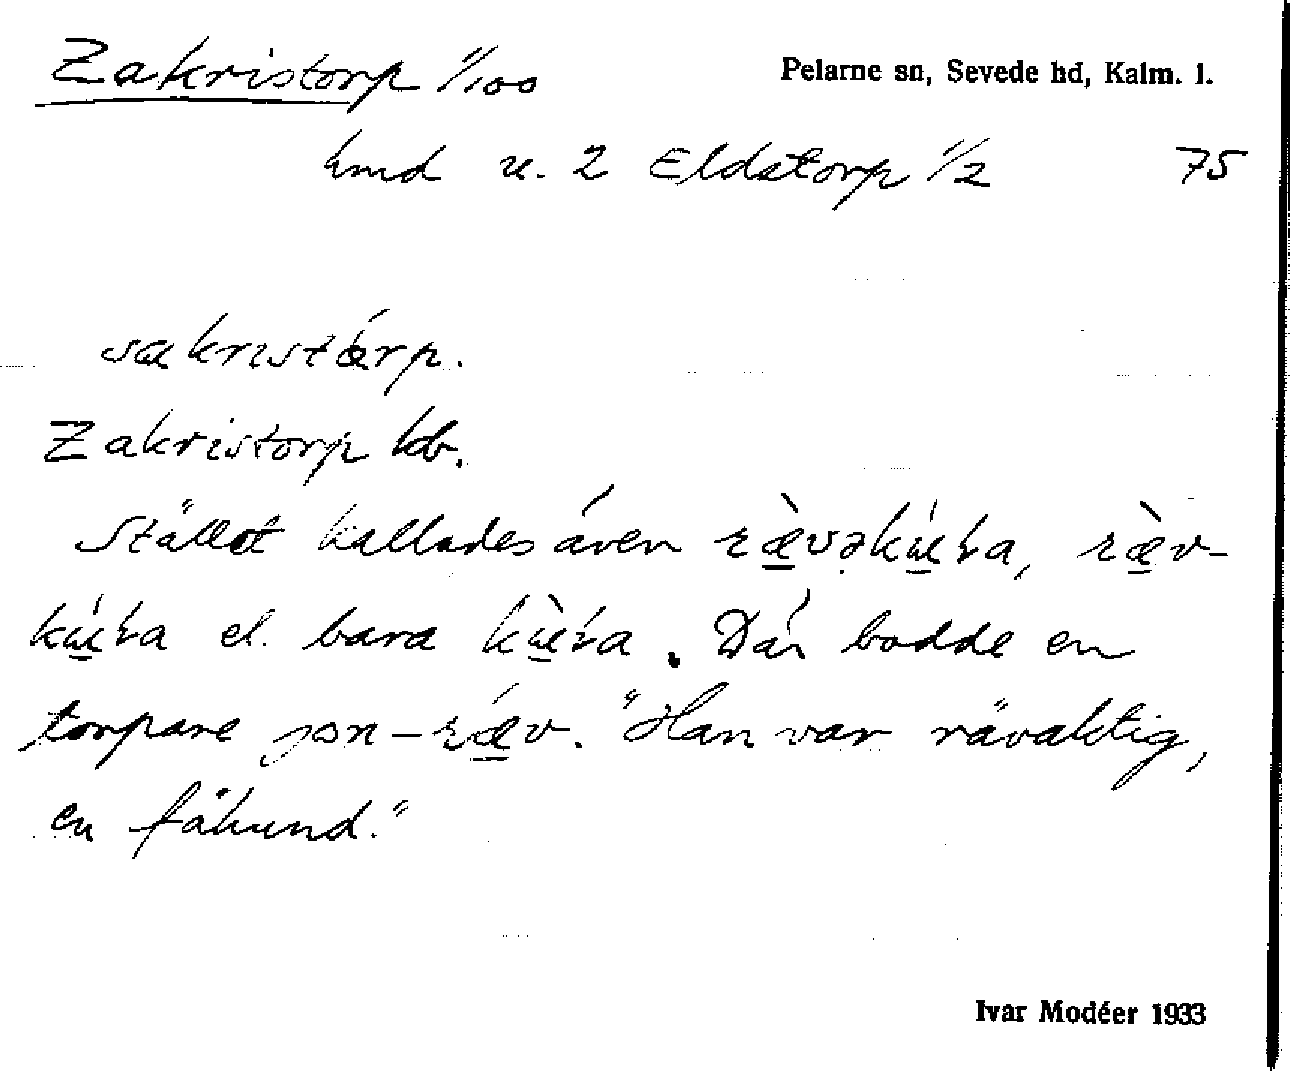 Zakristorp 1/100
Pelarne sn, Sevede hd, Kalm. l.
hmd u. 2 Eldstorp 1/2 75
sakrɪstǽrp.
Zakristorp kb.
Stället kallades även ræ̀vəkúla, ræ̀v-
kúla el. bara kùla. Där bodde en
torpare jon-rǽv. "Han var rävaktig,
en fähund."
Ivar Modéer 1933